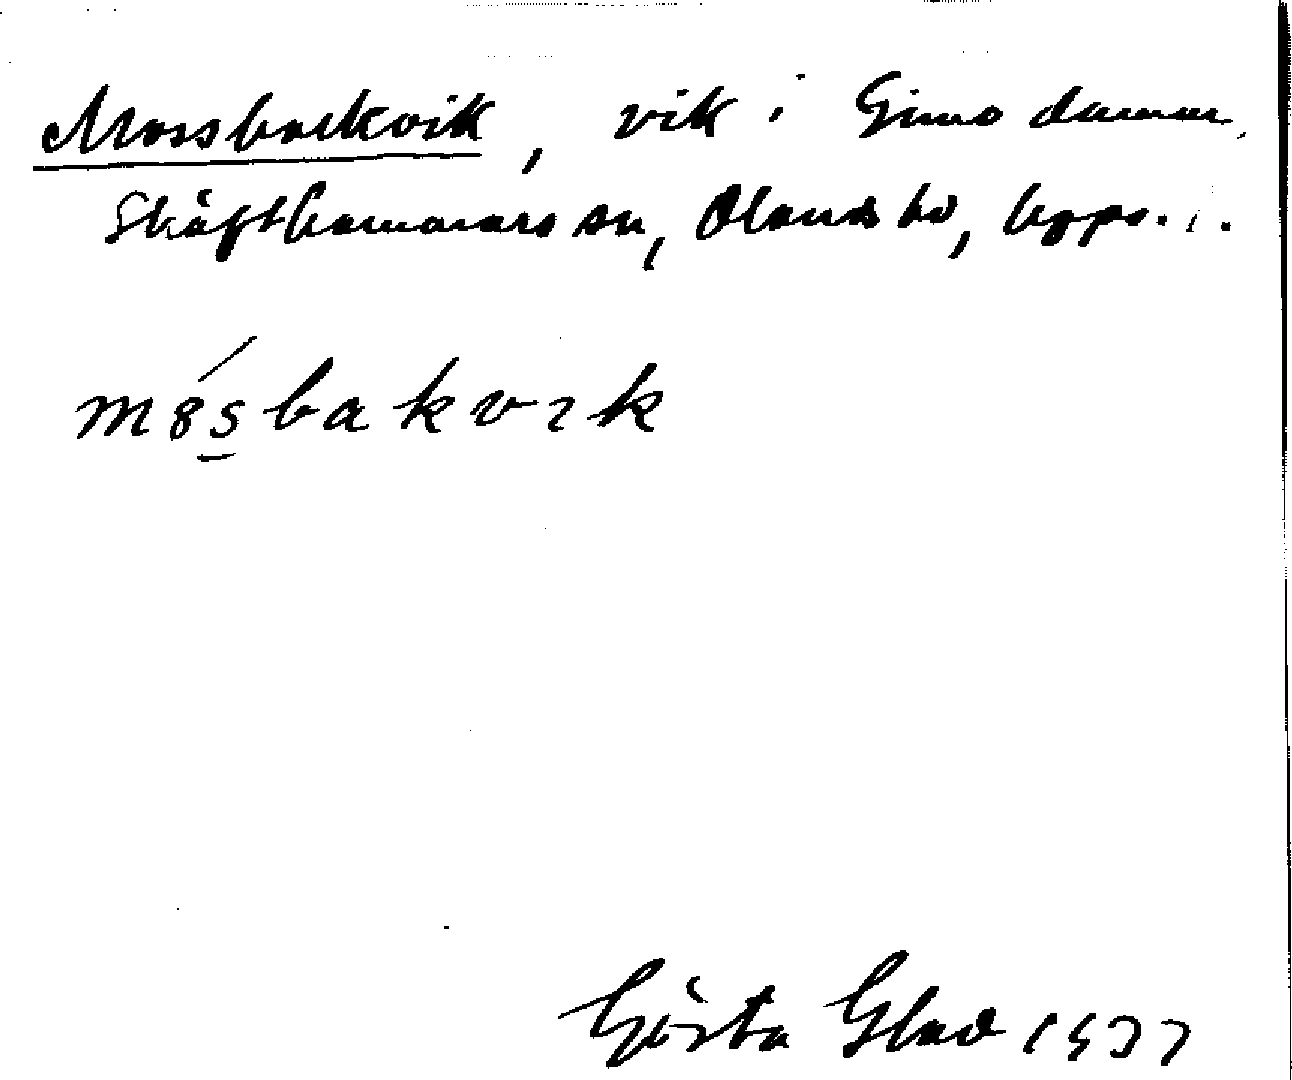 Mossbackvik, vik i Gimo damm,
Skäfthammars sn, Olands hd, Upps. l.
mo̍s̲bakvɩk
Gösta Glad 1937